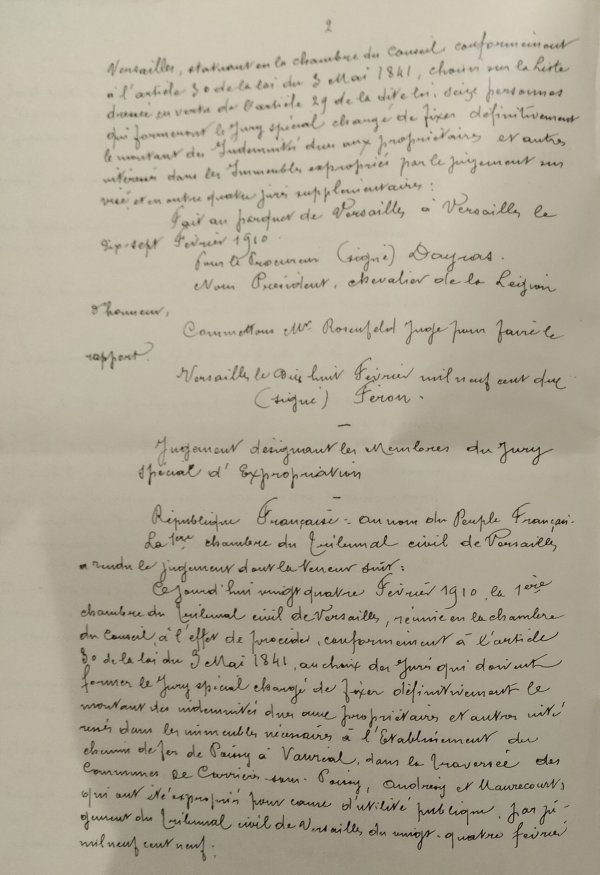 2
Versailles, statuant en la chambre du Conseil, conformément
à l'article 30 de la loi du 3 Mai 1841, choisir sur la Liste
dressée en vertu de l'article 29 de la dite loi, seize personnes
qui formeront le Jury spécial chargé de fixer définitivement
le montant des Indemnités dues aux propriétaires et autres
intéressés dans les Immeubles expropriés par le jugement sus
visé et en outre quatre jurés supplémentaires :
Fait au parquet de Versailles à Versailles le
dix-sept Février 1910.
Pour le Procureur (signé) Dayras.
Nous Président, chevalier de la Légion
d'honneur,
Commettons Mr. Rosenfeld Juge pour faire le
rapport.
Versailles le Dix huit Février mil neuf cent dix
(signé) Féron.
Jugement désignant les Membres du Jury
spécial d'Expropriation
République Française = au nom du Peuple Français.
La 1ère chambre du Tribunal civil de Versailles
a rendu le jugement dont la teneur suit :
Ce jourd'hui vingt quatre Février 1910, la 1ère
chambre du Tribunal civil de Versailles, réunie en la chambre
du Conseil, à l'effet de procéder, conformément à l'article
30 de la loi du 3 Mai 1841, au choix des Jurés qui doivent
former le Jury spécial chargé de fixer définitivement le
montant des indemnités dues aux propriétaires et autres inté
ressés dans les immeubles nécessaires à l'Etablissement du
chemin de fer de Poissy à Vauréal, dans la traversée des
Communes de Carrières-sous-Poissy, Andrésy et Maurecourt,
qui ont été expropriés pour cause d'utilité publique, par ju-
gement du Tribunal civil de Versailles du vingt-quatre février
mil neuf cent neuf.